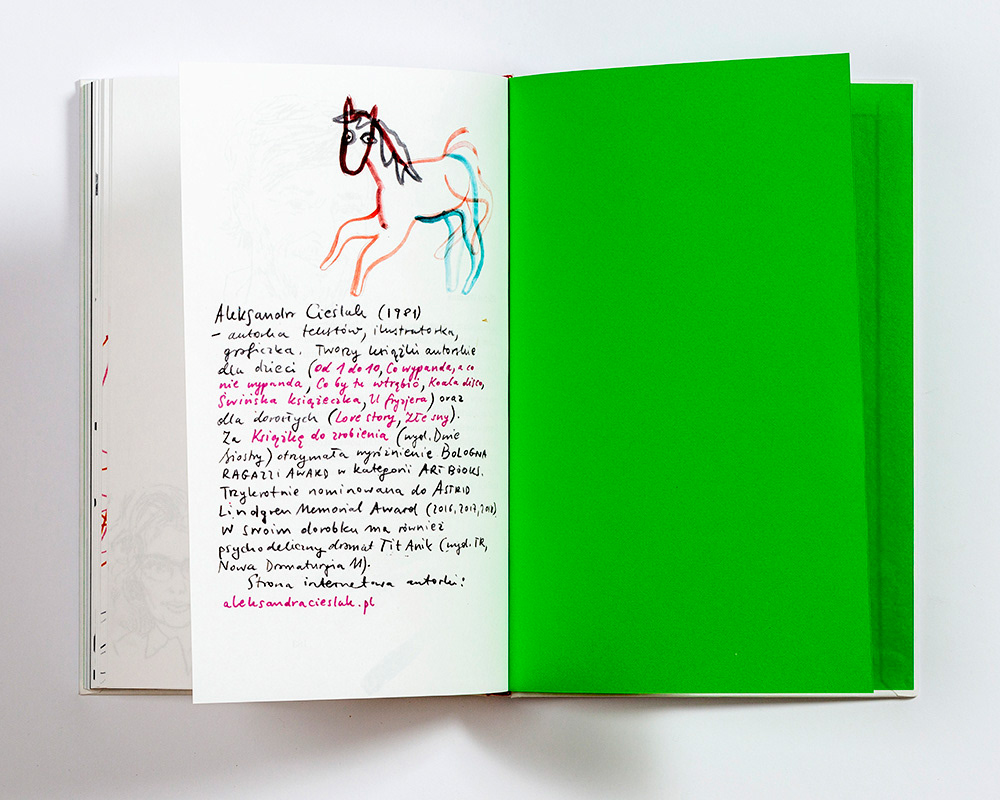 Aleksandra Cieślak (1981)
– autorka tekstów, ilustratorka,
graficzka. Tworzy książki autorskie
dla dzieci (Od 1 do 10, Co wypanda, a co
nie wypanda, Co by tu wtrąbić, Koala disco,
Świńska książeczka, U fryzjera) oraz
dla dorosłych (Love story, Złe sny).
Za Książkę do zrobienia (wyd. Dwie
Siostry) otrzymała wyróżnienie BOLOGNA
RAGAZZI AWARD w kategorii ART BOOKS.
Trzykrotnie nominowana do ASTRID
Lindgren Memorial Award (2016, 2017, 2018)
W swoim dorobku ma również
psychodeliczny dramat Tit Anik (wyd. TR,
Nowa Dramaturgia 11).
Strona internetowa autorki:
aleksandracieslak.pl